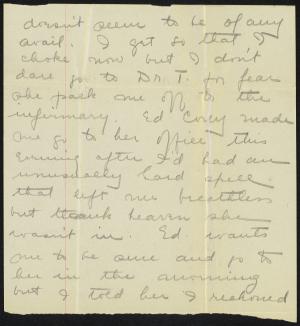 doesn't seem to be of any
avail. I get so that I
choke now but I don't
dare go to Dr. T. for fear
she pack me off to the
infirmary. Ed Corey made
me go to her office this
evening after I'd had an
unusually hard spell
that left me breathless
but thank heaven she
wasn't in. Ed. wants
me to be sure and go to
her in the morning
but I told her I reckoned